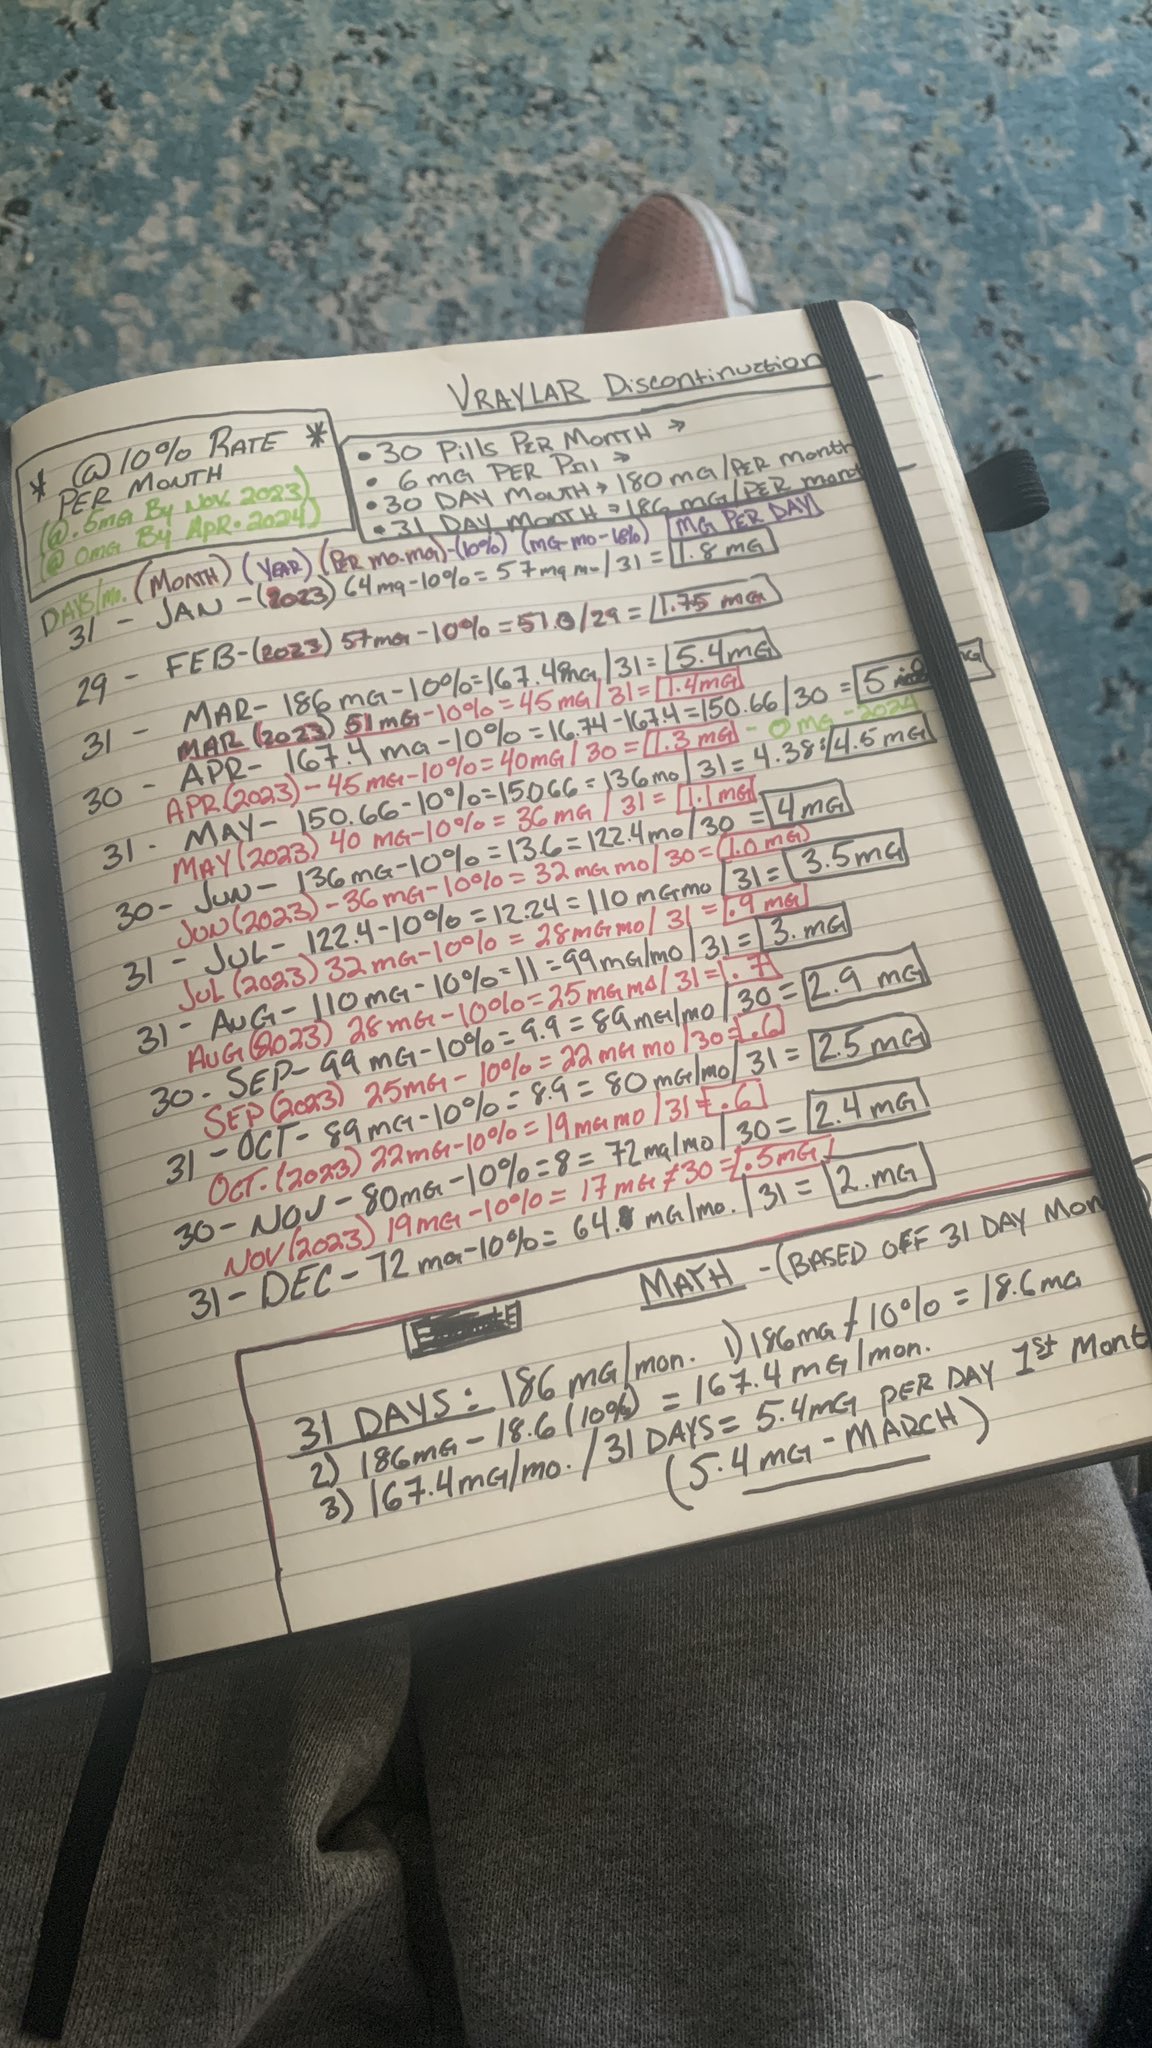 VRAYLAR Discontinuation
* @ 10% RATE *
PER MONTH
(@ .5mg By Nov. 2023)
@ 0mg By Apr. 2024)
• 30 Pills PER MONTH →
• 6 mg PER Pill →
• 30 DAY MONTH → 180 mg/PER month
• 31 DAY MONTH → 186 mg/PER month
DAYS/mo. (MONTH) (YEAR) (PER mo.mg)-(10%) (mg-mo-10%) MG PER DAY
31 - JAN - (2023) 64mg-10% = 57mg mo/31 = 1.8 mg
29 - FEB-(2023) 57mg-10% = 51.0/29 = 1.75 mg
31 - MAR- 186 mg-10%=167.4mg/31= 5.4mg
MAR (2023) 51 mg-10% = 45 mg/31 = 1.4mg
30 - APR- 167.4 mg-10% = 16.74-167.4=150.66/30 = 5 mg
APR(2023)-45mg-10%= 40mg/30 = 1.3 mg - 0mg-2024
31 - MAY- 150.66-10%=15066= 136mo/31= 4.38: 4.5mg
MAY(2023) 40 mg-10% = 36 mg/31 = 1.1mg
30- JUN- 136mg-10% = 13.6= 122.4mo/30 = 4mg
JUN(2023)-36mg-10% = 32 mg mo/30 = (1.0 mg)
31 - JUL- 122.4-10%=12.24=110 mgmo/31= 3.5mg
JUL(2023) 32mg-10% = 28mgmo/31 = .9 mg
31- AUG- 110mg-10%=11=99mg/mo/31= 3. mg
AUG(2023) 28mg-10%=25mgmo/31=.7
30- SEP- 99 mg-10%= 9.9= 89mg/mo/30= 2.9 mg
SEP(2023) 25mg-10% = 22mg mo/30=.6
31 - OCT- 89mg-10%= 8.9= 80mg/mo/31= 2.5mg
OCT.(2023) 22mg-10%= 19mgmo/31=.6
30- NOV - 80mg-10%=8= 72mg/mo/30= 2.4mg
NOV(2023) 19mg-10%= 17 mg/30= .5mg
31- DEC- 72 mg-10%= 64. mg/mo./31 = 2.mg
MATH - (BASED OFF 31 DAY Mon
31 DAYS: 186 mg/mon. 1) 186mg/10% = 18.6mg
2) 186mg - 18.6(10%) = 167.4mg/mon.
3) 167.4mg/mo./31 DAYS= 5.4mg PER DAY 1st Mont
(5.4mg-MARCH)